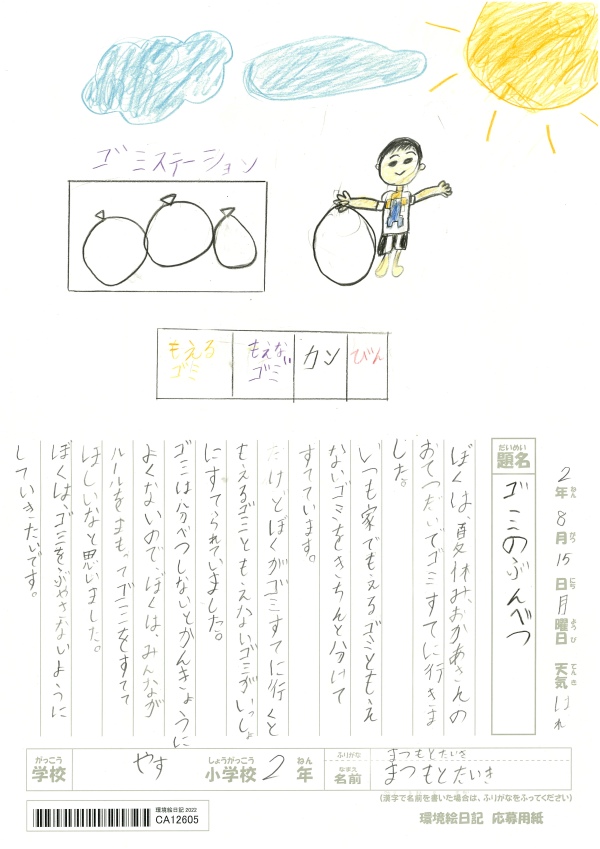 ゴミステーション
もえる
ゴミ
もえない
ゴミ
カン
びん
2年8月15日月曜日 天気 はれ
ねん がつ にち ようび てんき
だいめい
題名
ゴミのぶんべつ
ぼくは、夏休み、おかあさんの
おてつだいでゴミすてに行きま
した。
いつも家でもえるゴミともえ
ないゴミをきちんと分けて
すてています。
だけどぼくがゴミすてに行くと
もえるゴミともえないゴミがいっしょ
にすてられていました。
ゴミは分べつしないとかんきょうに
よくないので、ぼくは、みんなが
ルールをまもってゴミをすてて
ほしいなと思いました。
ぼくは、ゴミをふやさないように
していきたいです。
がっこう
学校
やす
しょうがっこう
小学校
2
ねん
年
ふりがな
まつもとたいき
なまえ
名前
まつもとたいき
(漢字で名前を書いた場合は、ふりがなをふってください)
環境絵日記 2022
CA12605
環境絵日記 応募用紙